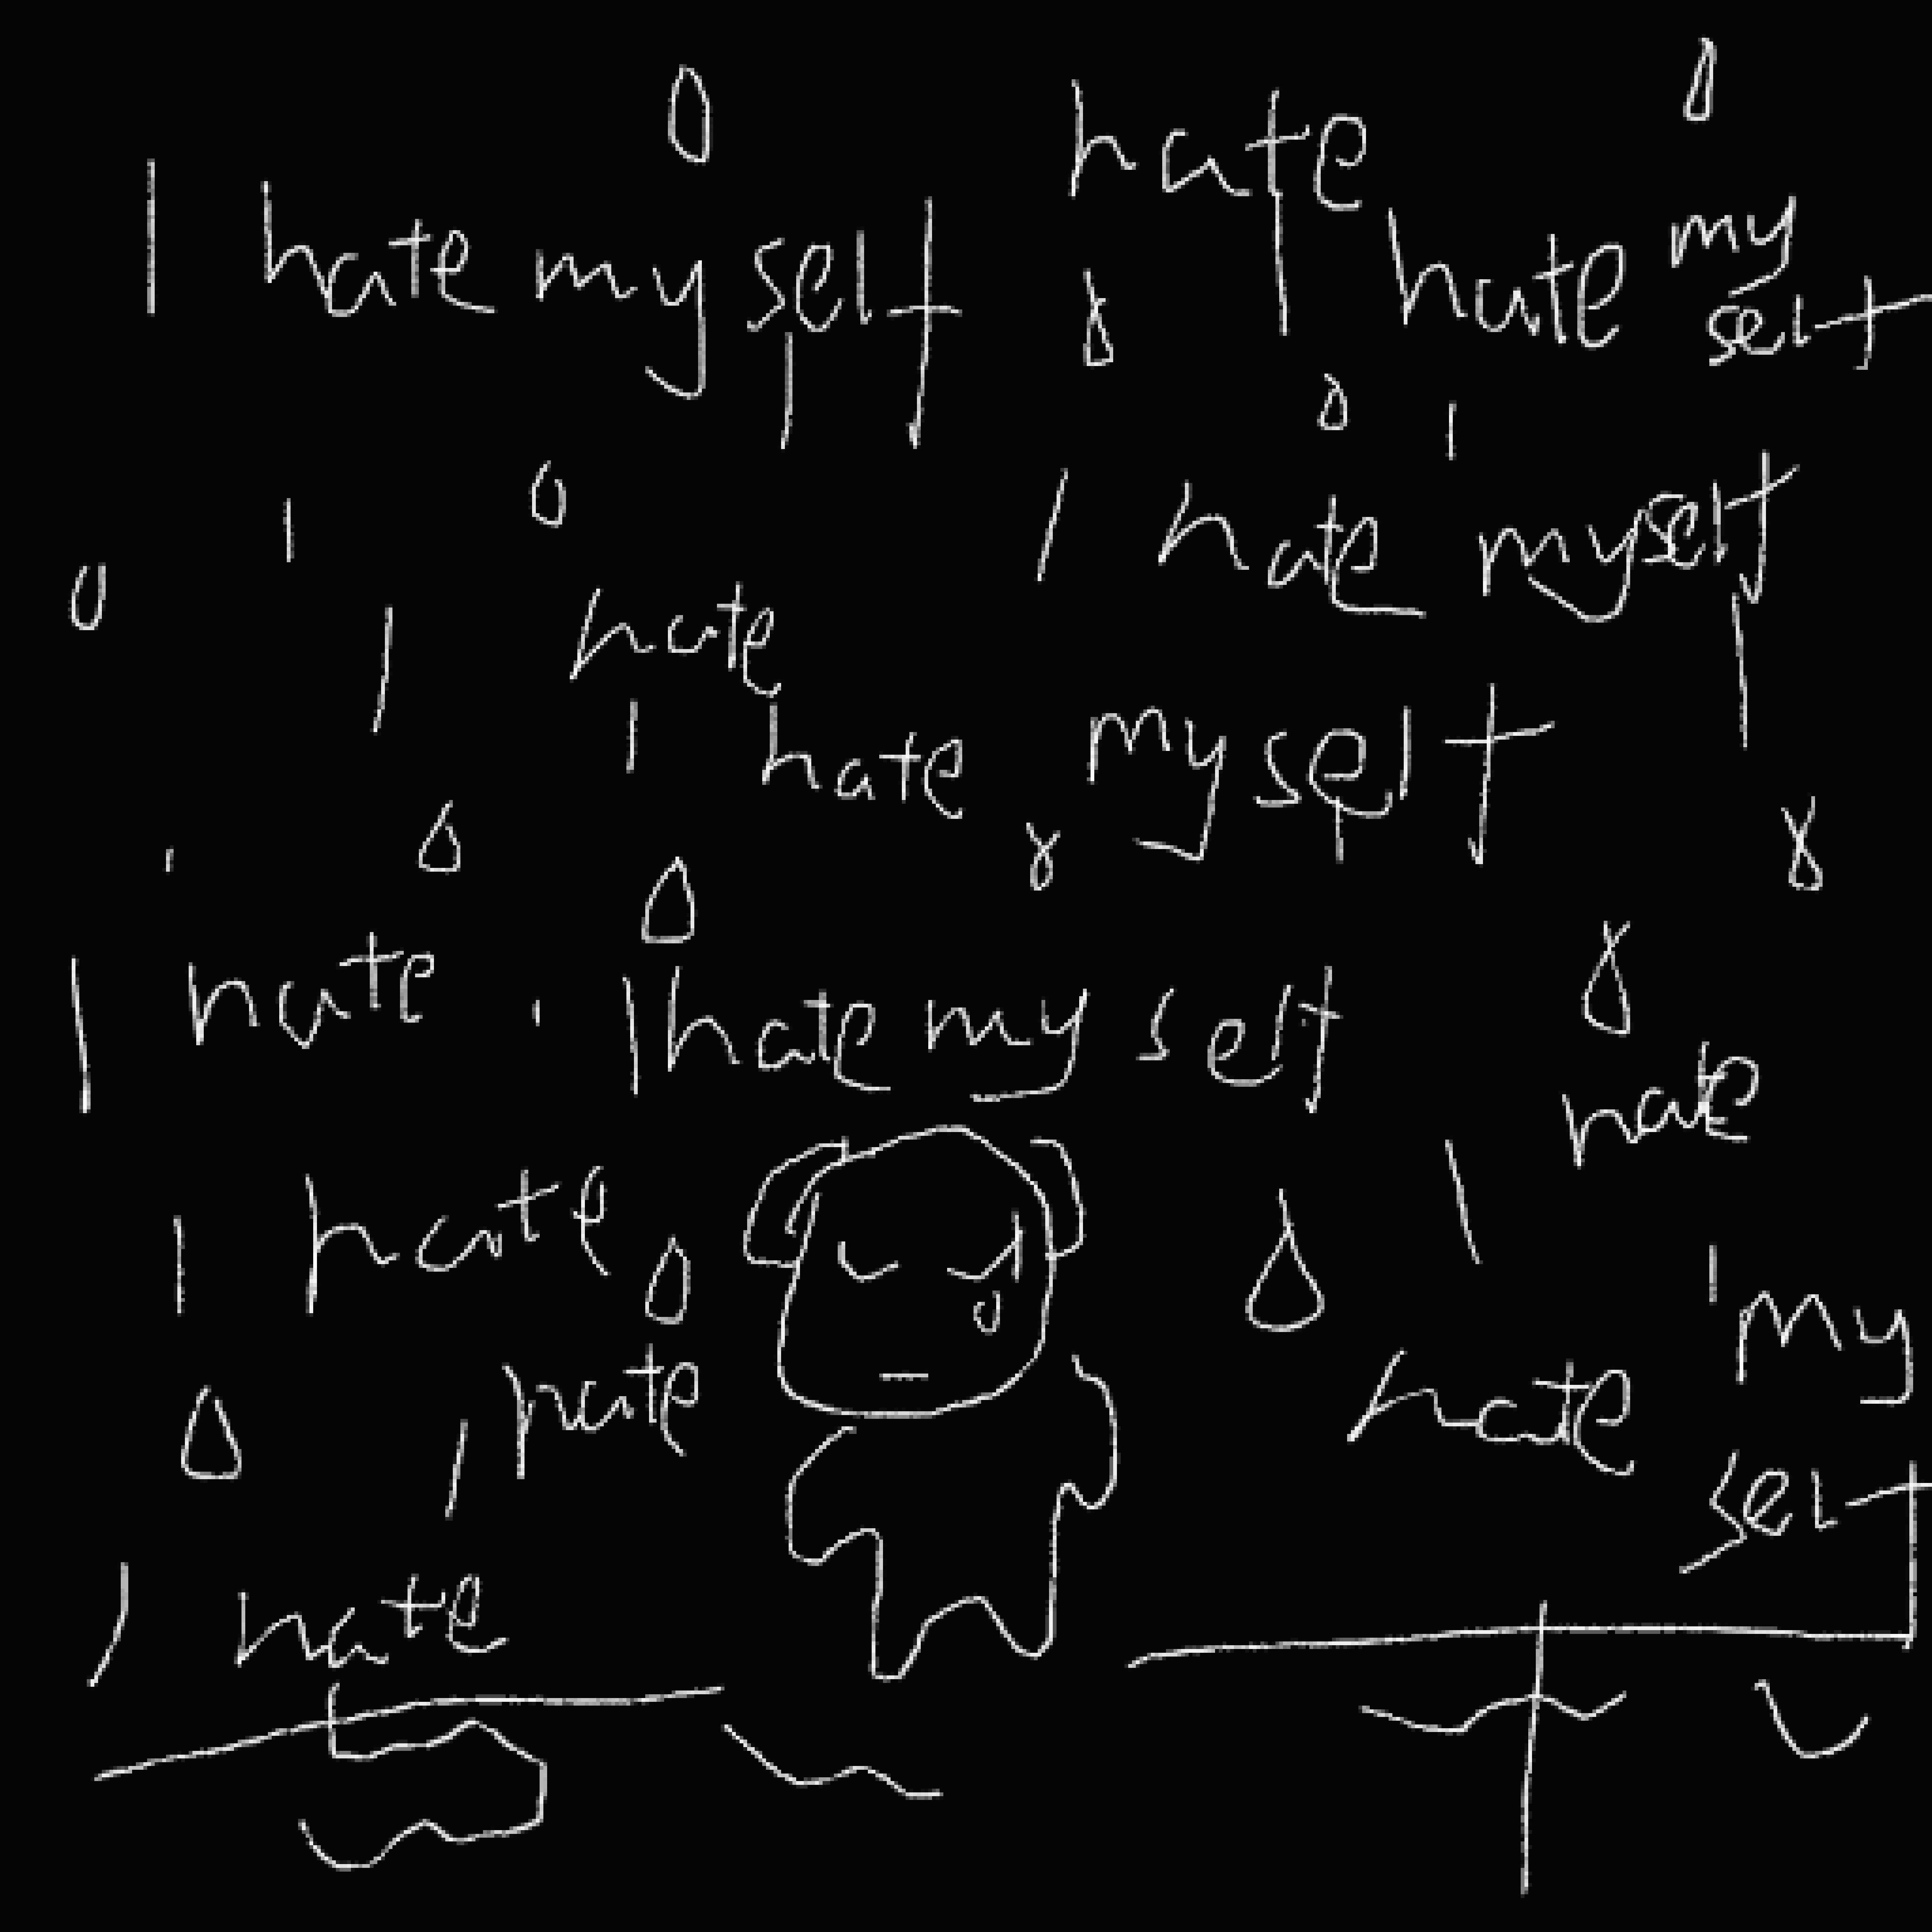 hate
I hate myself
hate my
self
I hate myself
I hate
I hate myself
I hate
I hate myself
I hate
I hate
I hate
hate
my
self
I hate